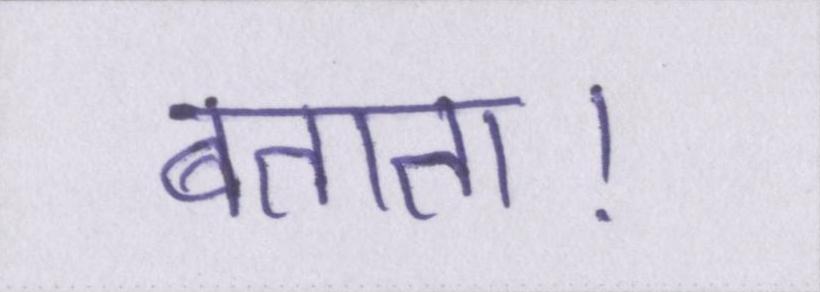 बताता!